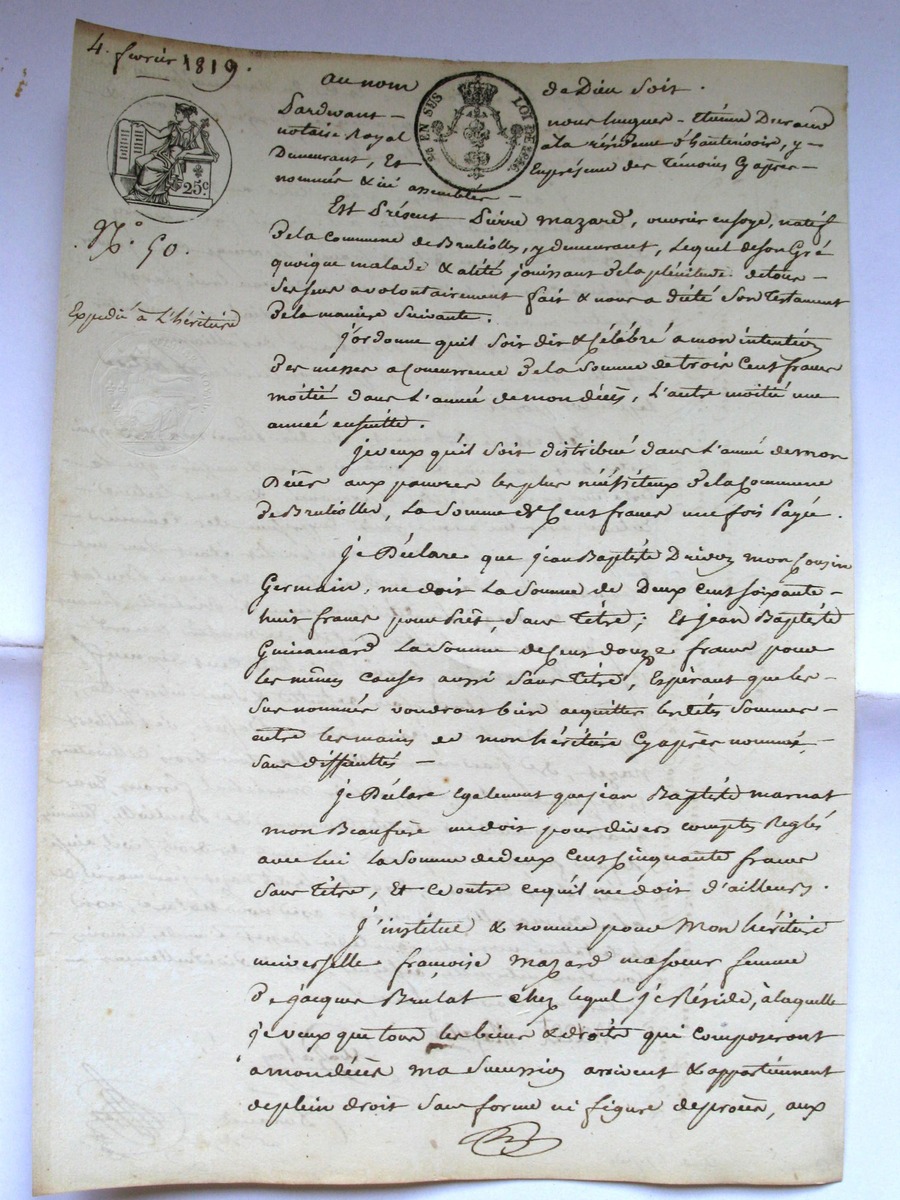 4. fevrier 1819.
au nom de Dieu soit.
Pardevant nous Jacques - Etienne Durand
notaire Royal à la résidence d'hauterivoire, y
Demeurant, Et En présence des Témoins Cy après
nommés & ici assemblés
EN SUS LOI DE
25c
N.° 50.
Expedié à L'héritière
Est Présent Pierre Mazard, ouvrier en soye, natif
de la Commune de Brullioles, y demeurant, Lequel de son Gré
quoique malade & alité jouissant de la plénitude de tous
ses sens a volontairement fait & nous a dicté Son Testament
de la manière Suivante.
j'ordonne qu'il soit dit & Célébré a mon intention
Des messes a Concurrence de la Somme de trois Cent francs
moitié dans L'année de mon décès, L'autre moitié une
année ensuitte.
je veux qu'il Soit distribué dans L'année de mon
Décès aux pauvres les plus nécessiteux de la Commune
de Brullioles, La Somme de Cent francs une fois Payée.
je Déclare que jean Baptiste Drivon mon Cousin
Germain, me doit La Somme de Deux Cent soixante
huit francs pour Prêt, Sans Titre; Et jean Baptiste
Guinamard La Somme de Cent douze francs pour
les mêmes Causes aussi Sans Titre, Espérant que les
Sus nommés voudront bien acquitter les dites Sommes
entre les mains de mon héritière Cy après nommée,
Sans difficultés
je Déclare Egalement que jean Baptiste marnat
mon Beaufrère me doit pour divers comptes Reglés
avec Lui La Somme de deux Cent Cinquante francs
Sans Titre, Et Ce outre ce qu'il me doit d'ailleurs.
j'institue & nomme pour Mon héritière
universelle françoise Mazard ma soeur femme
De jacques Brulat chez lequel je Réside, à laquelle
je veux que tous les biens & droits qui composeront
a mon décès ma Succession arrivent & appartiennent
de plein droit Sans forme ni figure de procès, aux